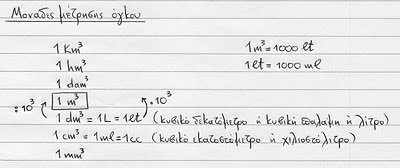 Μοναδες μέτρησης όγκου
1 Km³
1 hm³
1 dam³
1 m³
:10³ ·10³
1 dm³ = 1L = 1lt (κυβικό δεκατόμετρο ή κυβική παλάμη ή λίτρο)
1 cm³ = 1ml = 1cc (κυβικό εκατοστόμετρο ή χιλιοστόλιτρο)
1 mm³
1m³ = 1000 lt
1lt = 1000 ml